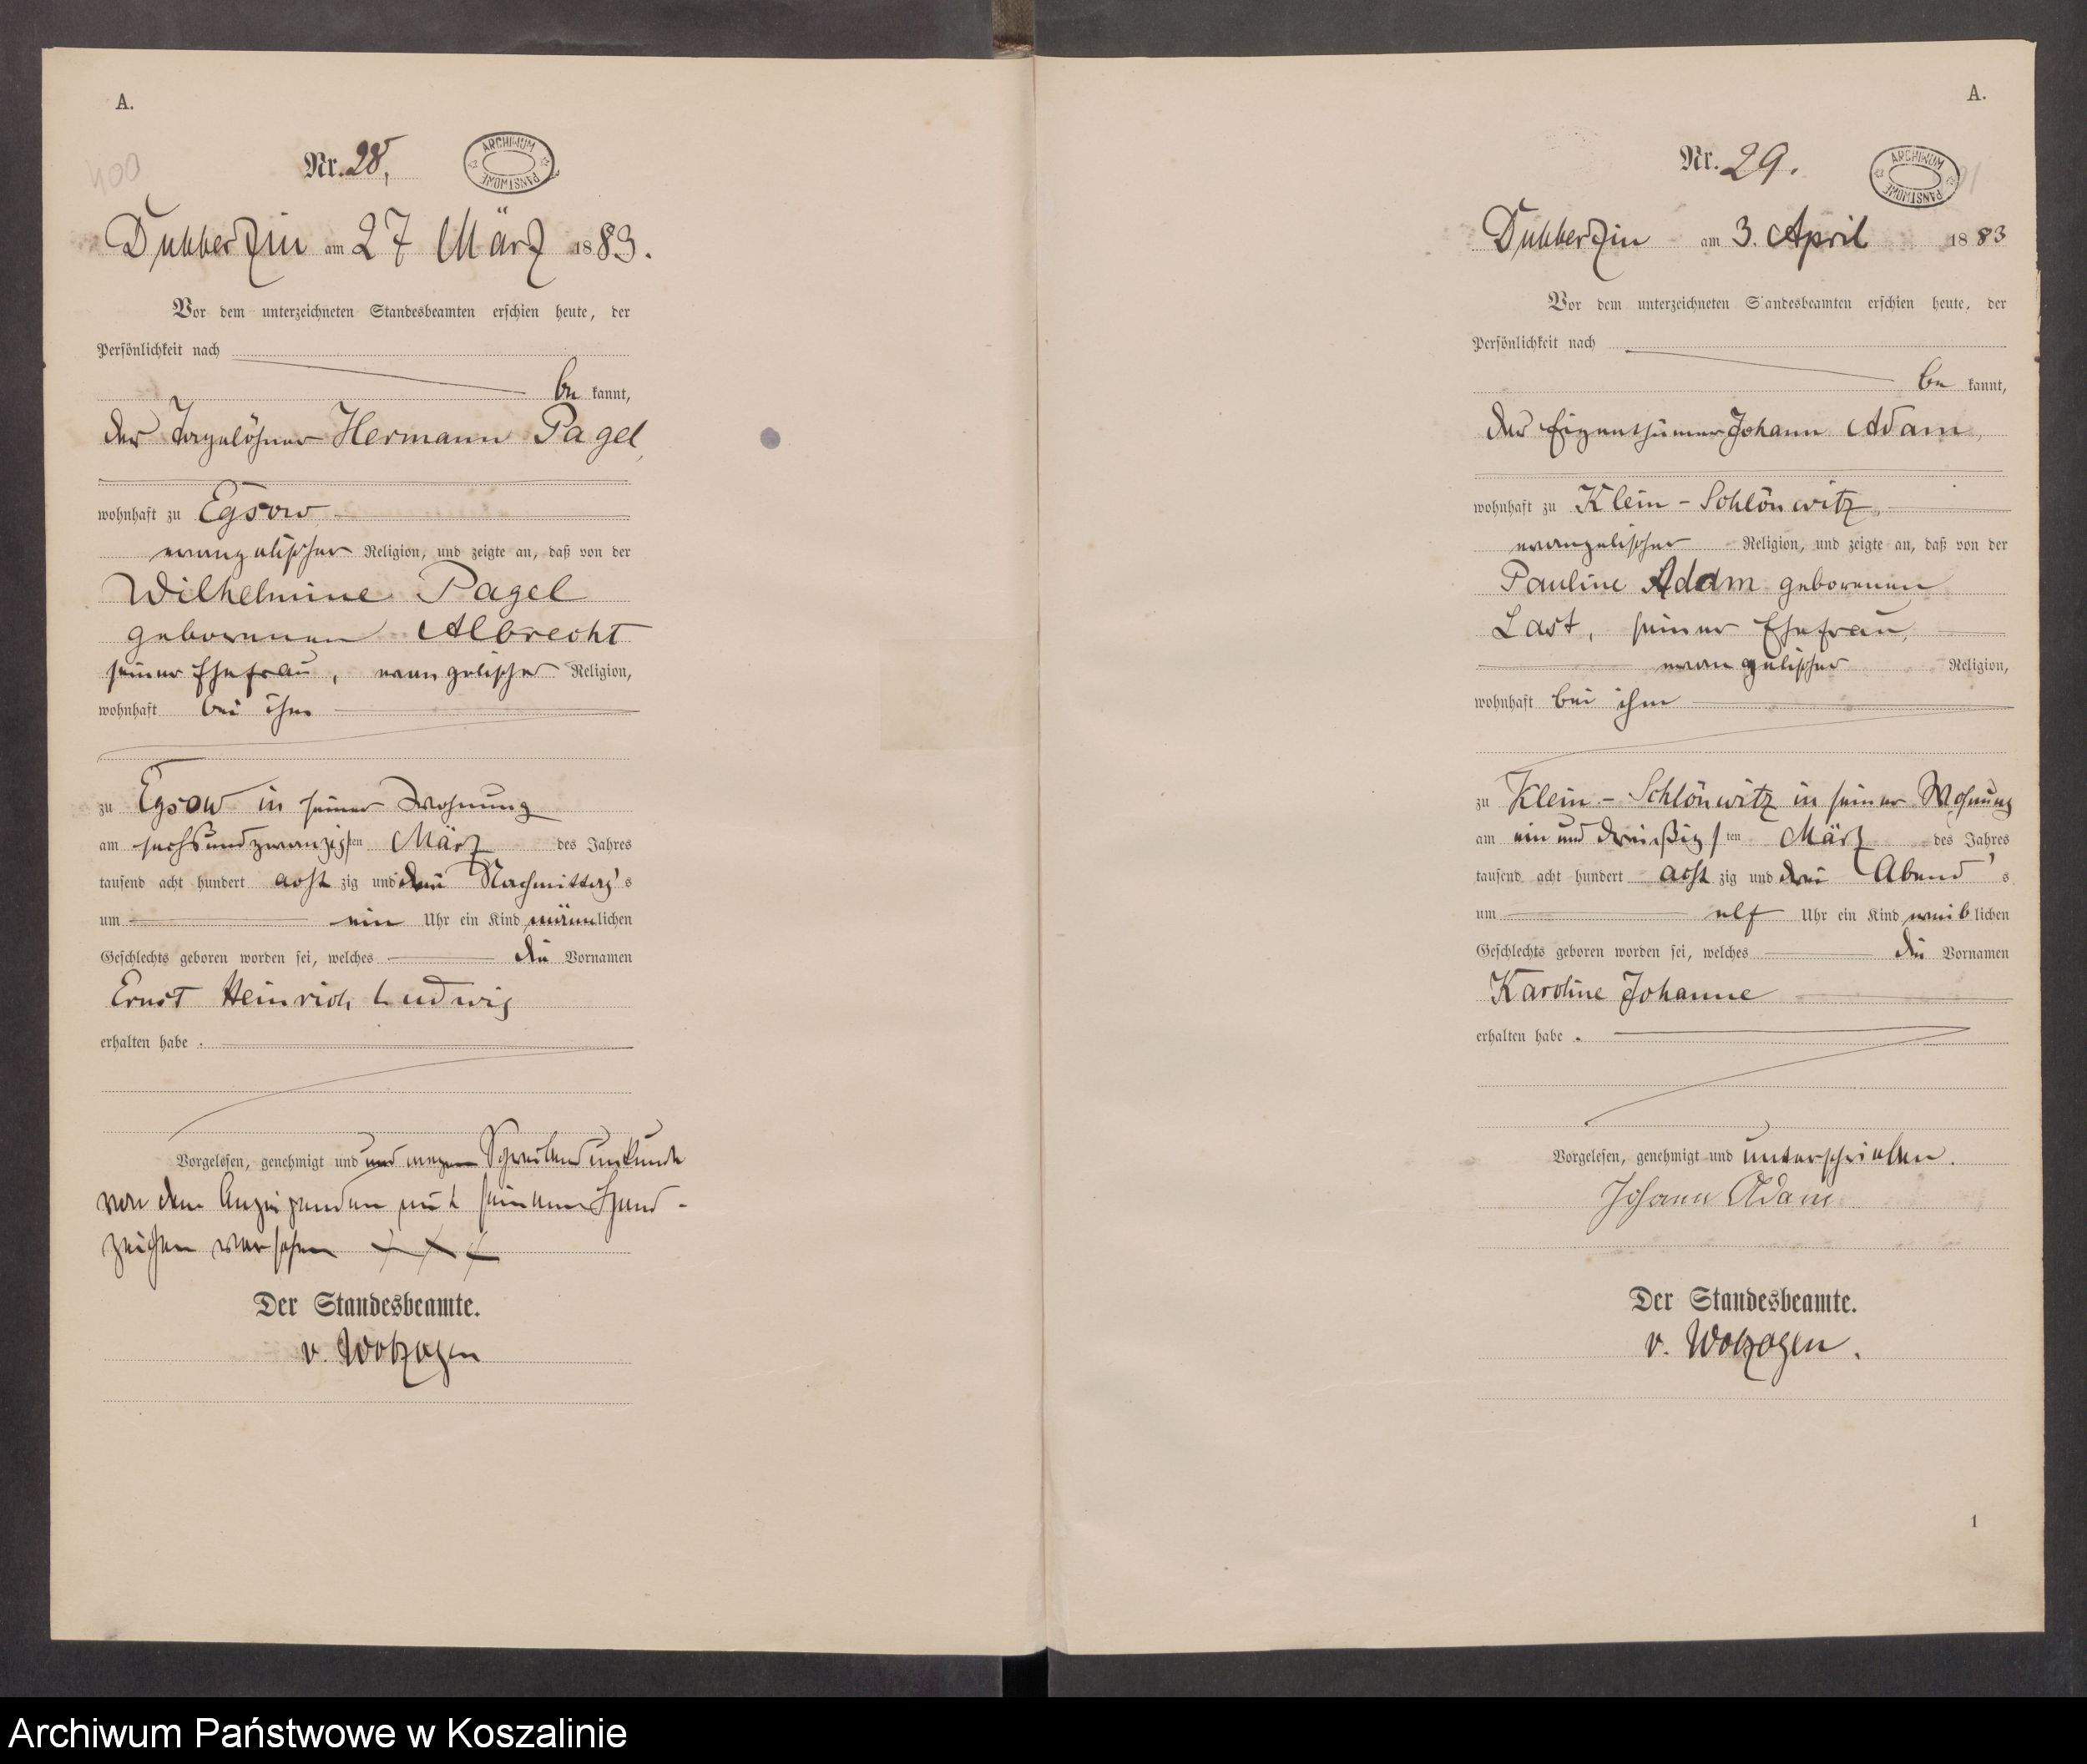 A.
400
Nr. 28,
ARCHIWUM PAŃSTWOWE
Dubberzin am 27 März 1883.
Vor dem unterzeichneten Standesbeamten erschien heute, der
Persönlichkeit nach
be kannt,
der Tagelöhner Hermann Pagel,
wohnhaft zu Egsow
evangelischer Religion, und zeigte an, daß von der
Wilhelmine Pagel
geborenen Albrecht
seiner Ehefrau, evangelischer Religion,
wohnhaft bei ihm
zu Egsow in seiner Wohnung
am sechsundzwanzigsten März des Jahres
tausend acht hundert acht zig und drei Nachmittag's
um ein Uhr ein Kind männlichen
Geschlechts geboren worden sei, welches die Vornamen
Ernst Heinrich Ludwig
erhalten habe .
Vorgelesen, genehmigt und und wegen Schreibensunkunde
von dem Anzeigenden mit seinem Hand-
zeichen versehen + + +
Der Standesbeamte.
v. Wolzogen
A.
Nr. 29.
ARCHIWUM PAŃSTWOWE
Dubberzin am 3. April 1883
Vor dem unterzeichneten Standesbeamten erschien heute, der
Persönlichkeit nach
be kannt,
der Eigenthümer Johann Adam,
wohnhaft zu Klein-Schlönwitz,
evangelischer Religion, und zeigte an, daß von der
Pauline Adam geborenen
Last, seiner Ehefrau,
evangelischer Religion,
wohnhaft bei ihm
zu Klein-Schlönwitz in seiner Wohnung
am ein und dreißigsten März des Jahres
tausend acht hundert acht zig und drei Abend's
um elf Uhr ein Kind weiblichen
Geschlechts geboren worden sei, welches die Vornamen
Karoline Johanne
erhalten habe .
Vorgelesen, genehmigt und unterschrieben.
Johann Adam
Der Standesbeamte.
v. Wolzogen.
1
Archiwum Państwowe w Koszalinie